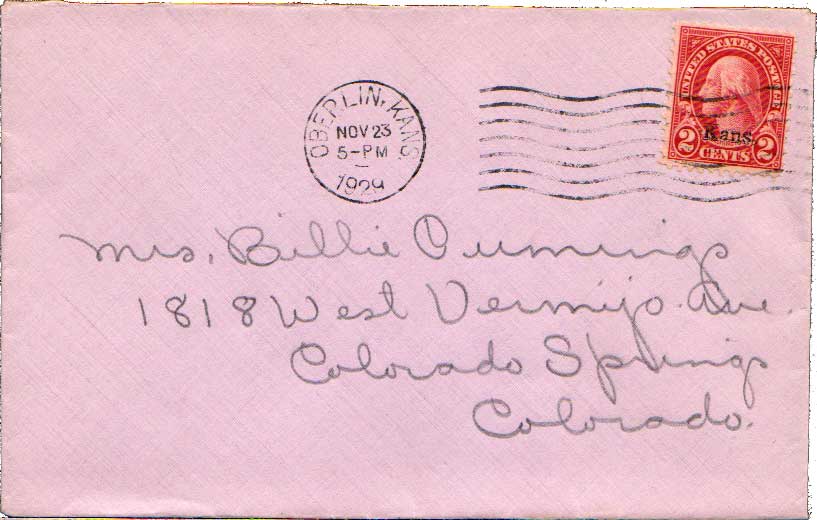 OBERLIN, KANS.
NOV 23
5-PM
1929
UNITED STATES POSTAGE
Kans.
2 CENTS 2
Mrs. Billie Cummings
1818 West Vermijo Ave.
Colorado Springs
Colorado.